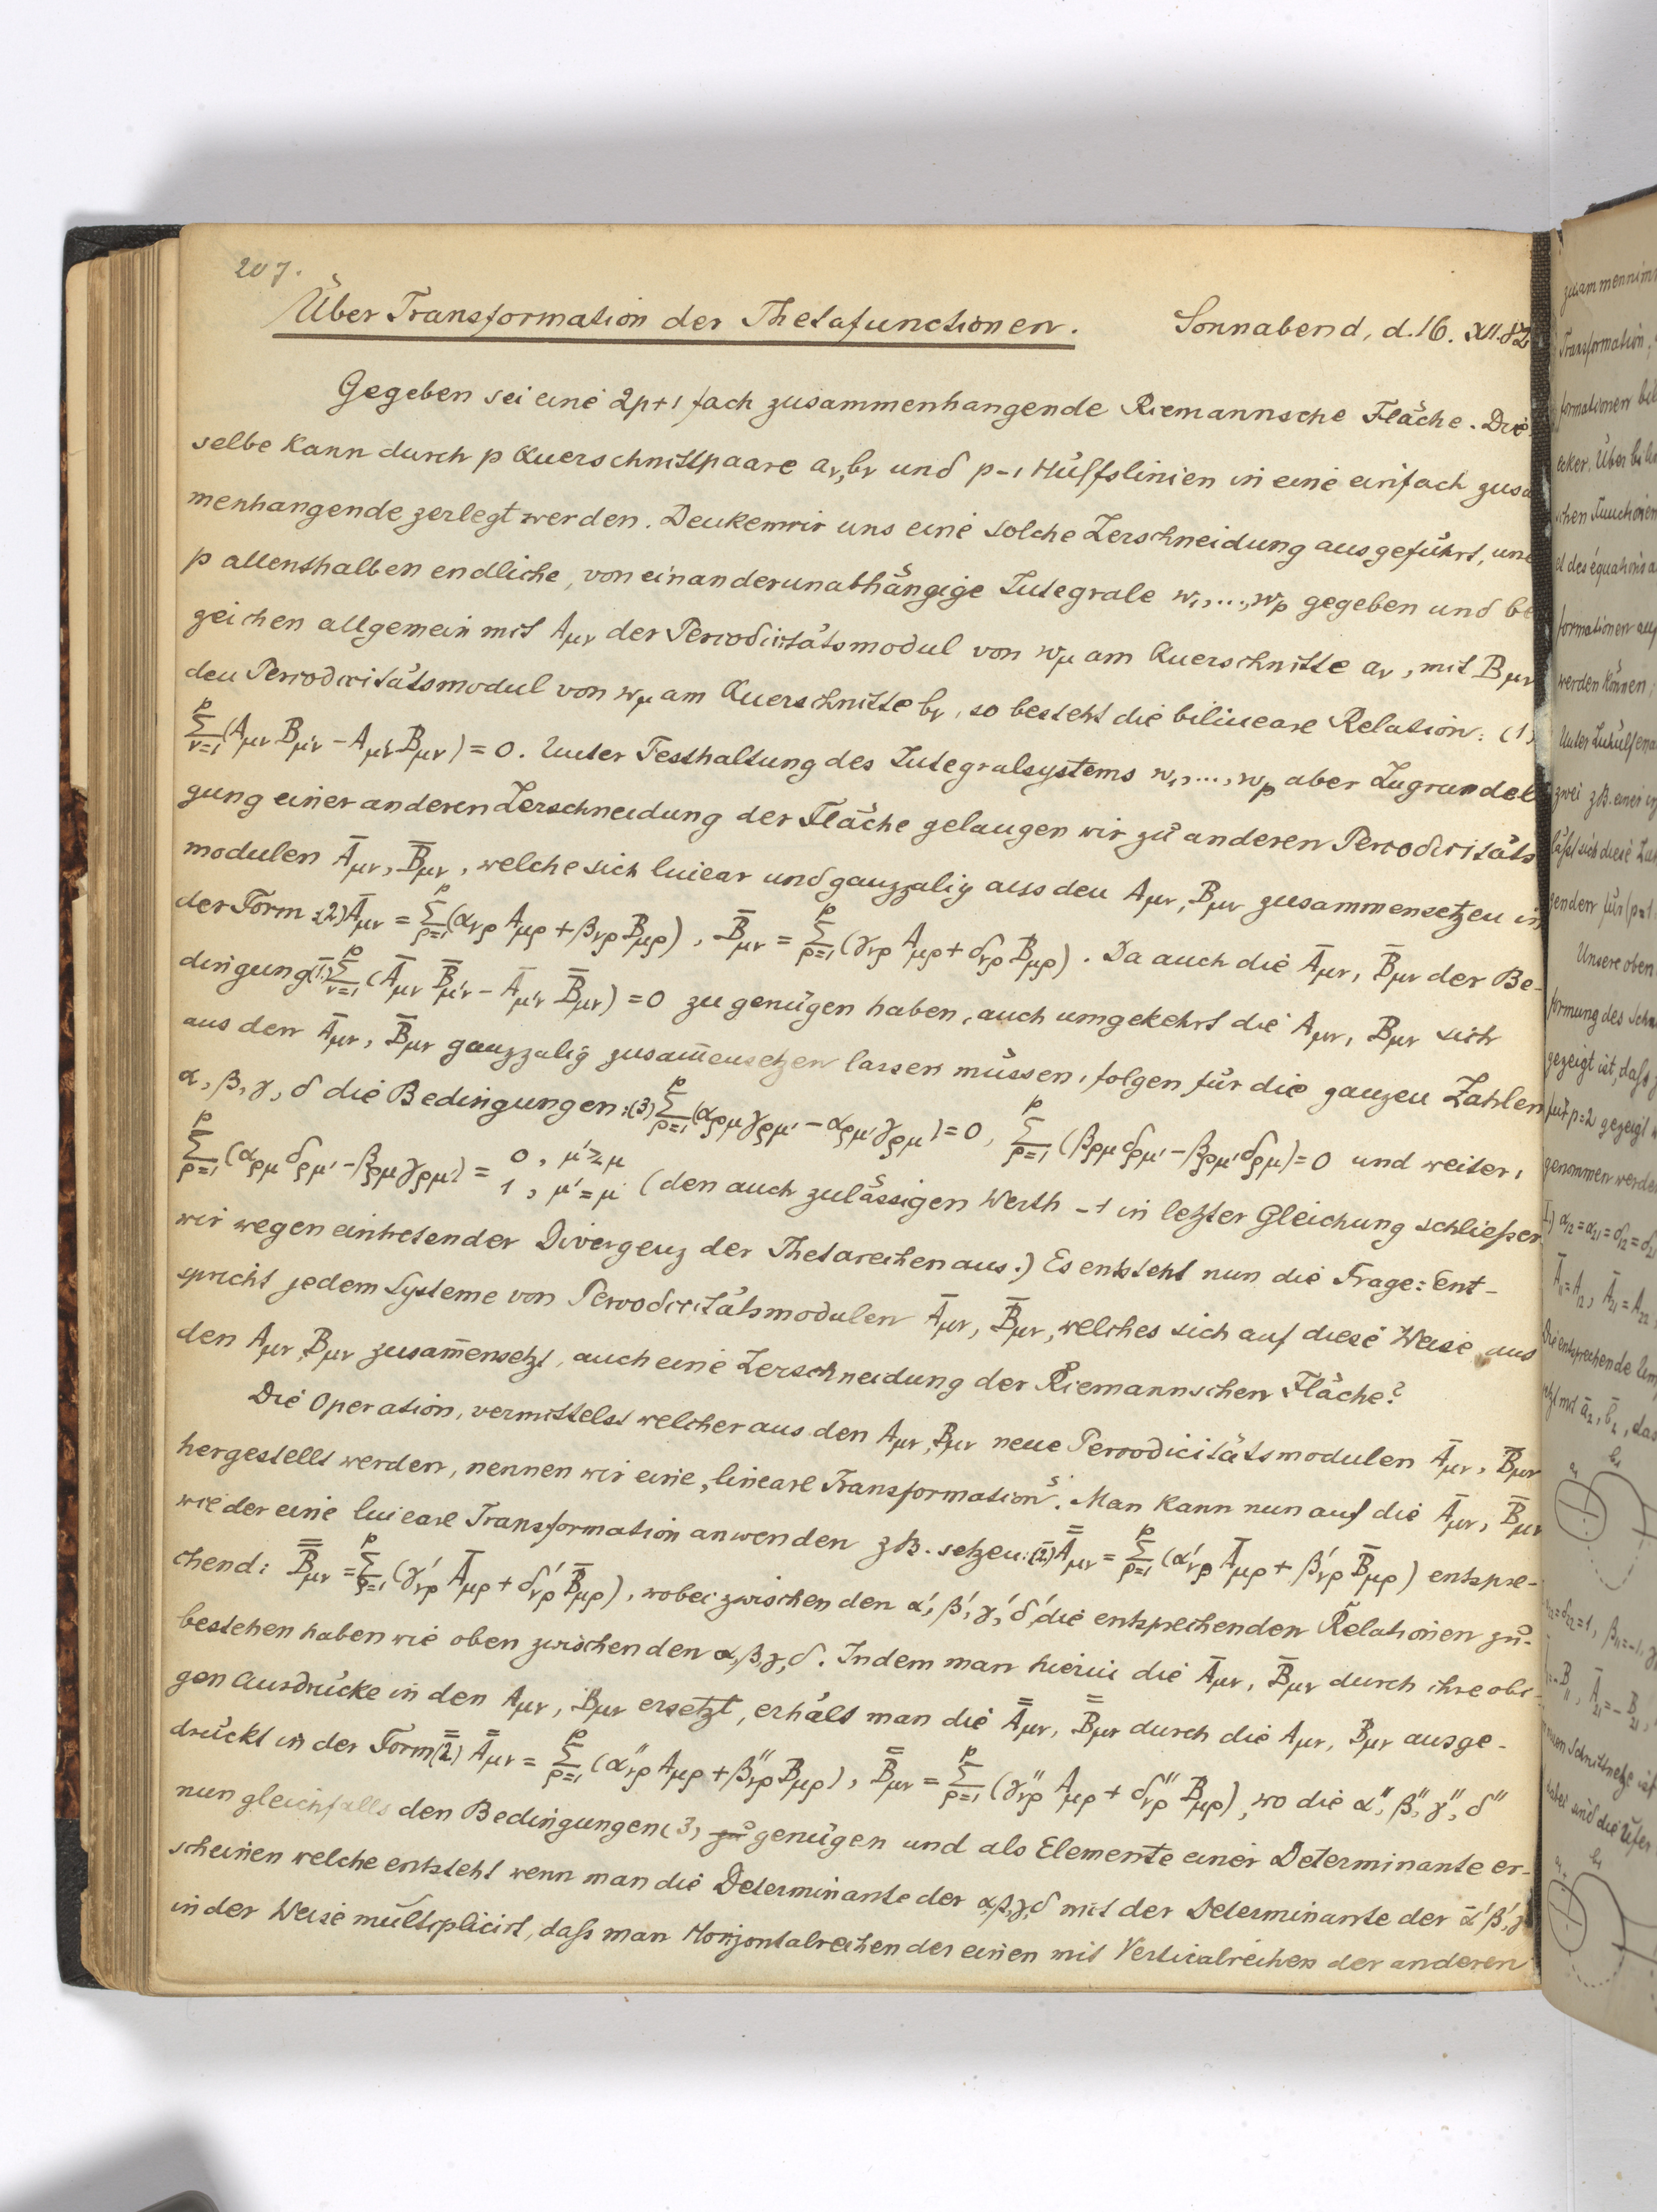 207.
Über Transformation der Thetafunctionen. Sonnabend, d. 16. XII. 82
Gegeben sei eine 2p+1 fach zusammenhangende Riemannsche Fläche. Die
selbe kann durch p Querschnittpaare aᵥ, bᵥ und p-1 Hülfslinien in eine einfach zusa
menhangende zerlegt werden. Denken wir uns eine solche Zerschneidung ausgeführt, und
p allenthalben endliche, von einander unabhängige Integrale w₁, ..., wₚ gegeben und be
zeichen allgemein mit A_μν der Periodicitätsmodul von w_μ am Querschnitte aᵥ, mit B_μν
den Periodicitätsmodul von w_μ am Querschnitte bᵥ, so besteht die bilineare Relation: (1)
∑_{ν=1}^{p} (A_μν B_μ'ν - A_μ'ν B_μν) = 0. Unter Festhaltung des Integralsystems w₁, ..., wₚ aber Zugrundele
gung einer anderen Zerschneidung der Fläche gelangen wir zu anderen Periodicitäts
modulen Ā_μν, B̄_μν, welche sich linear und ganzzalig aus den A_μν, B_μν zusammensetzen in
der Form: (2) Ā_μν = ∑_{ρ=1}^{p} (α_νρ A_μρ + β_νρ B_μρ), B̄_μν = ∑_{ρ=1}^{p} (γ_νρ A_μρ + δ_νρ B_μρ). Da auch die Ā_μν, B̄_μν der Be-
dingung (1̄) ∑_{ν=1}^{p} (Ā_μν B̄_μ'ν - Ā_μ'ν B̄_μν) = 0 zu genügen haben, auch umgekehrt die A_μν, B_μν sich
aus den Ā_μν, B̄_μν ganzzalig zusam̅ensetzen lassen müssen, folgen für die ganzen Zahlen
α, β, γ, δ die Bedingungen: (3) ∑_{ρ=1}^{p} (α_ρμ γ_ρμ' - α_ρμ' γ_ρμ) = 0, ∑_{ρ=1}^{p} (β_ρμ δ_ρμ' - β_ρμ' δ_ρμ) = 0 und weiter,
∑_{ρ=1}^{p} (α_ρμ δ_ρμ' - β_ρμ γ_ρμ') = 0, μ' ≷ μ 1, μ' = μ (den auch zulässigen Werth -1 in letzter Gleichung schließen
wir wegen eintretender Divergenz der Thetareihen aus.) Es entsteht nun die Frage: Ent-
spricht jedem Systeme von Periodicitätsmodulen Ā_μν, B̄_μν, welches sich auf diese Weise aus
den A_μν, B_μν zusam̅ensetzt, auch eine Zerschneidung der Riemannschen Fläche?
Die Operation, vermittelst welcher aus den A_μν, B_μν neue Periodicitätsmodulen Ā_μν, B̄_μν
hergestellt werden, nennen wir eine „lineare Transformation". Man kann nun auf die Ā_μν, B̄_μν
wieder eine lineare Transformation anwenden z.B. setzen: (2̄) A̿_μν = ∑_{ρ=1}^{p} (α'_νρ Ā_μρ + β'_νρ B̄_μρ) entspre-
chend: B̿_μν = ∑_{ρ=1}^{p} (γ'_νρ Ā_μρ + δ'_νρ B̄_μρ), wobei zwischen den α', β', γ', δ' die entsprechenden Relationen zu
bestehen haben wie oben zwischen den α, β, γ, δ. Indem man hierin die Ā_μν, B̄_μν durch ihre obi-
gen Ausdrücke in den A_μν, B_μν ersetzt, erhält man die A̿_μν, B̿_μν durch die A_μν, B_μν ausge-
drückt in der Form (2̿) A̿_μν = ∑_{ρ=1}^{p} (α''_νρ A_μρ + β''_νρ B_μρ), B̿_μν = ∑_{ρ=1}^{p} (γ''_νρ A_μρ + δ''_νρ B_μρ), wo die α'', β'', γ'', δ''
nun gleichfalls den Bedingungen (3) genügen und als Elemente einer Determinante er-
scheinen welche entsteht wenn man die Determinante der α, β, γ, δ mit der Determinante der α', β', γ'
in der Weise multiplicirt, daß man Horizontalreihen der einen mit Verticalreihen der anderen
zusammennimm
Transformation,
formationen bil
schen Functionen
formationen auf
werden können;
zwei z.B. einer
läßt sich diese
Unsere oben
formung des Schn
gezeigt ist, daß
für p=2 gezeigt
genommen werde
I.) α₁₂=α₂₁=δ₁₂=δ₂₁
Die entsprechende